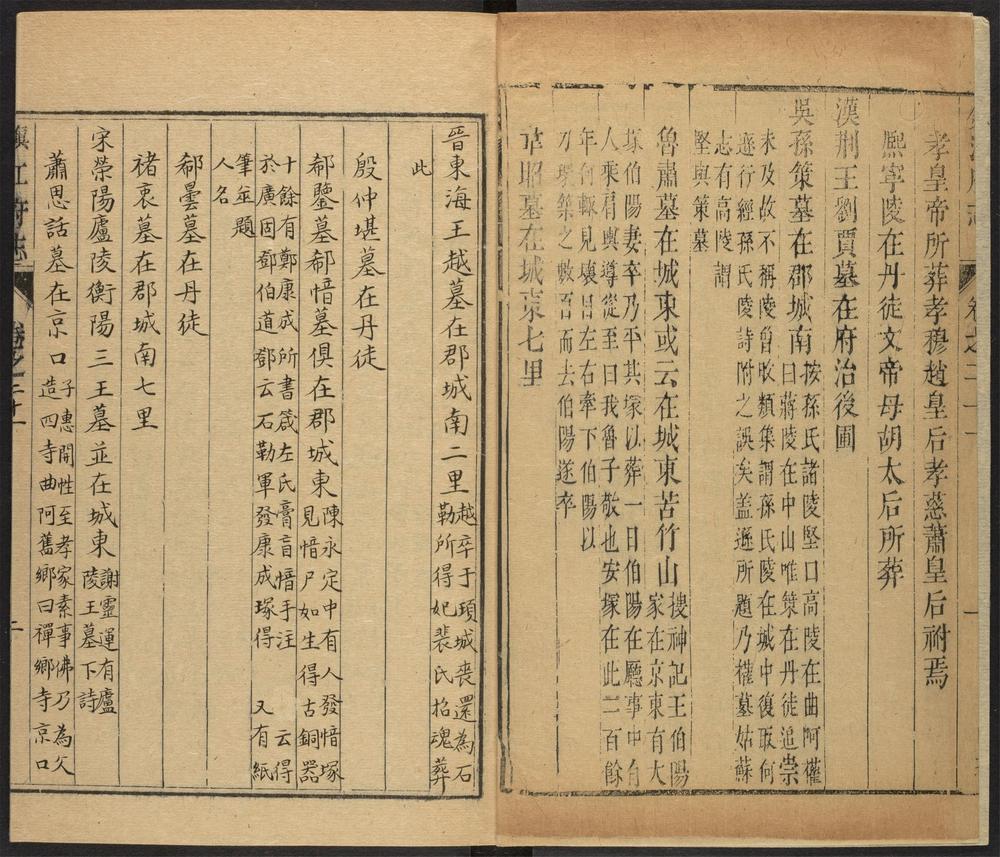 孝皇帝所葬孝穆趙皇后孝慈蕭皇后祔焉
熈寧陵在丹徒文帝母胡太后所葬
漢荆王劉賈墓在府治後圃
吳孫策墓在郡城南
按孫氏諸陵堅口高陵在曲阿權
曰蔣陵在中山唯策在丹徒追崇
未及故不稱陵曾旼類集謂孫氏陵在城中復取何
遜行經孫氏陵詩附之誤矣盖遜所題乃權墓姑蘇
志有高陵謂
堅與策墓
魯肅墓在城東或云在城東苦竹山
搜神記王伯陽
家在京東有大
塚伯陽妻卒乃平其塚以葬一日伯陽在廳事中有
人乘肩輿導從至曰我魯子敬也安塚在此二百餘
年何輙見壊目左右牽下伯陽以
刀環築之數百而去伯陽遂卒
韋昭墓在城東七里
晉東海王越墓在郡城南二里
越卒于項城喪還為石
勒所得妃裴氏招魂葬
此
殷仲堪墓在丹徒
郗鑒墓郗愔墓俱在郡城東
陳永定中有人發愔塚
見愔尸如生得古銅器
十餘有鄭康成所書箴左氏膏肓愔手注 云得
於廣固鄧伯道鄧云石勒軍發康成塚得 又有紙
筆並題
人名
郗曇墓在丹徒
禇裒墓在郡城南七里
宋滎陽廬陵衡陽三王墓並在城東
謝靈運有廬
陵王墓下詩
蕭思話墓在京口
子惠開性至孝家素事佛乃為父
造四寺曲阿舊鄉曰禪鄉寺京口
鎮江府志
卷之二十一
二